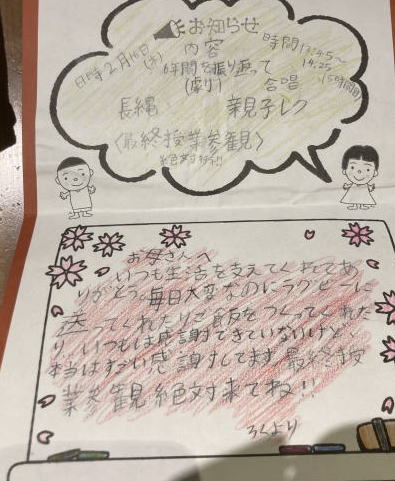 お知らせ
日時2月16日(木)
内容
時間13:45～
14:25
(5時間目)
6年間を振り返って
(劇り)
合唱
長縄
親子レク
〈最終授業参観〉
絶対来て!!
お母さんへ
いつも生活を支えてくれてあ
りがとう。毎日大変なのにラグビーに
送ってくれたりご飯をつくってくれた
り、いつもは感謝できていないけど
本当はすごい感謝してます。最終授
業参観絶対来てね!!
より